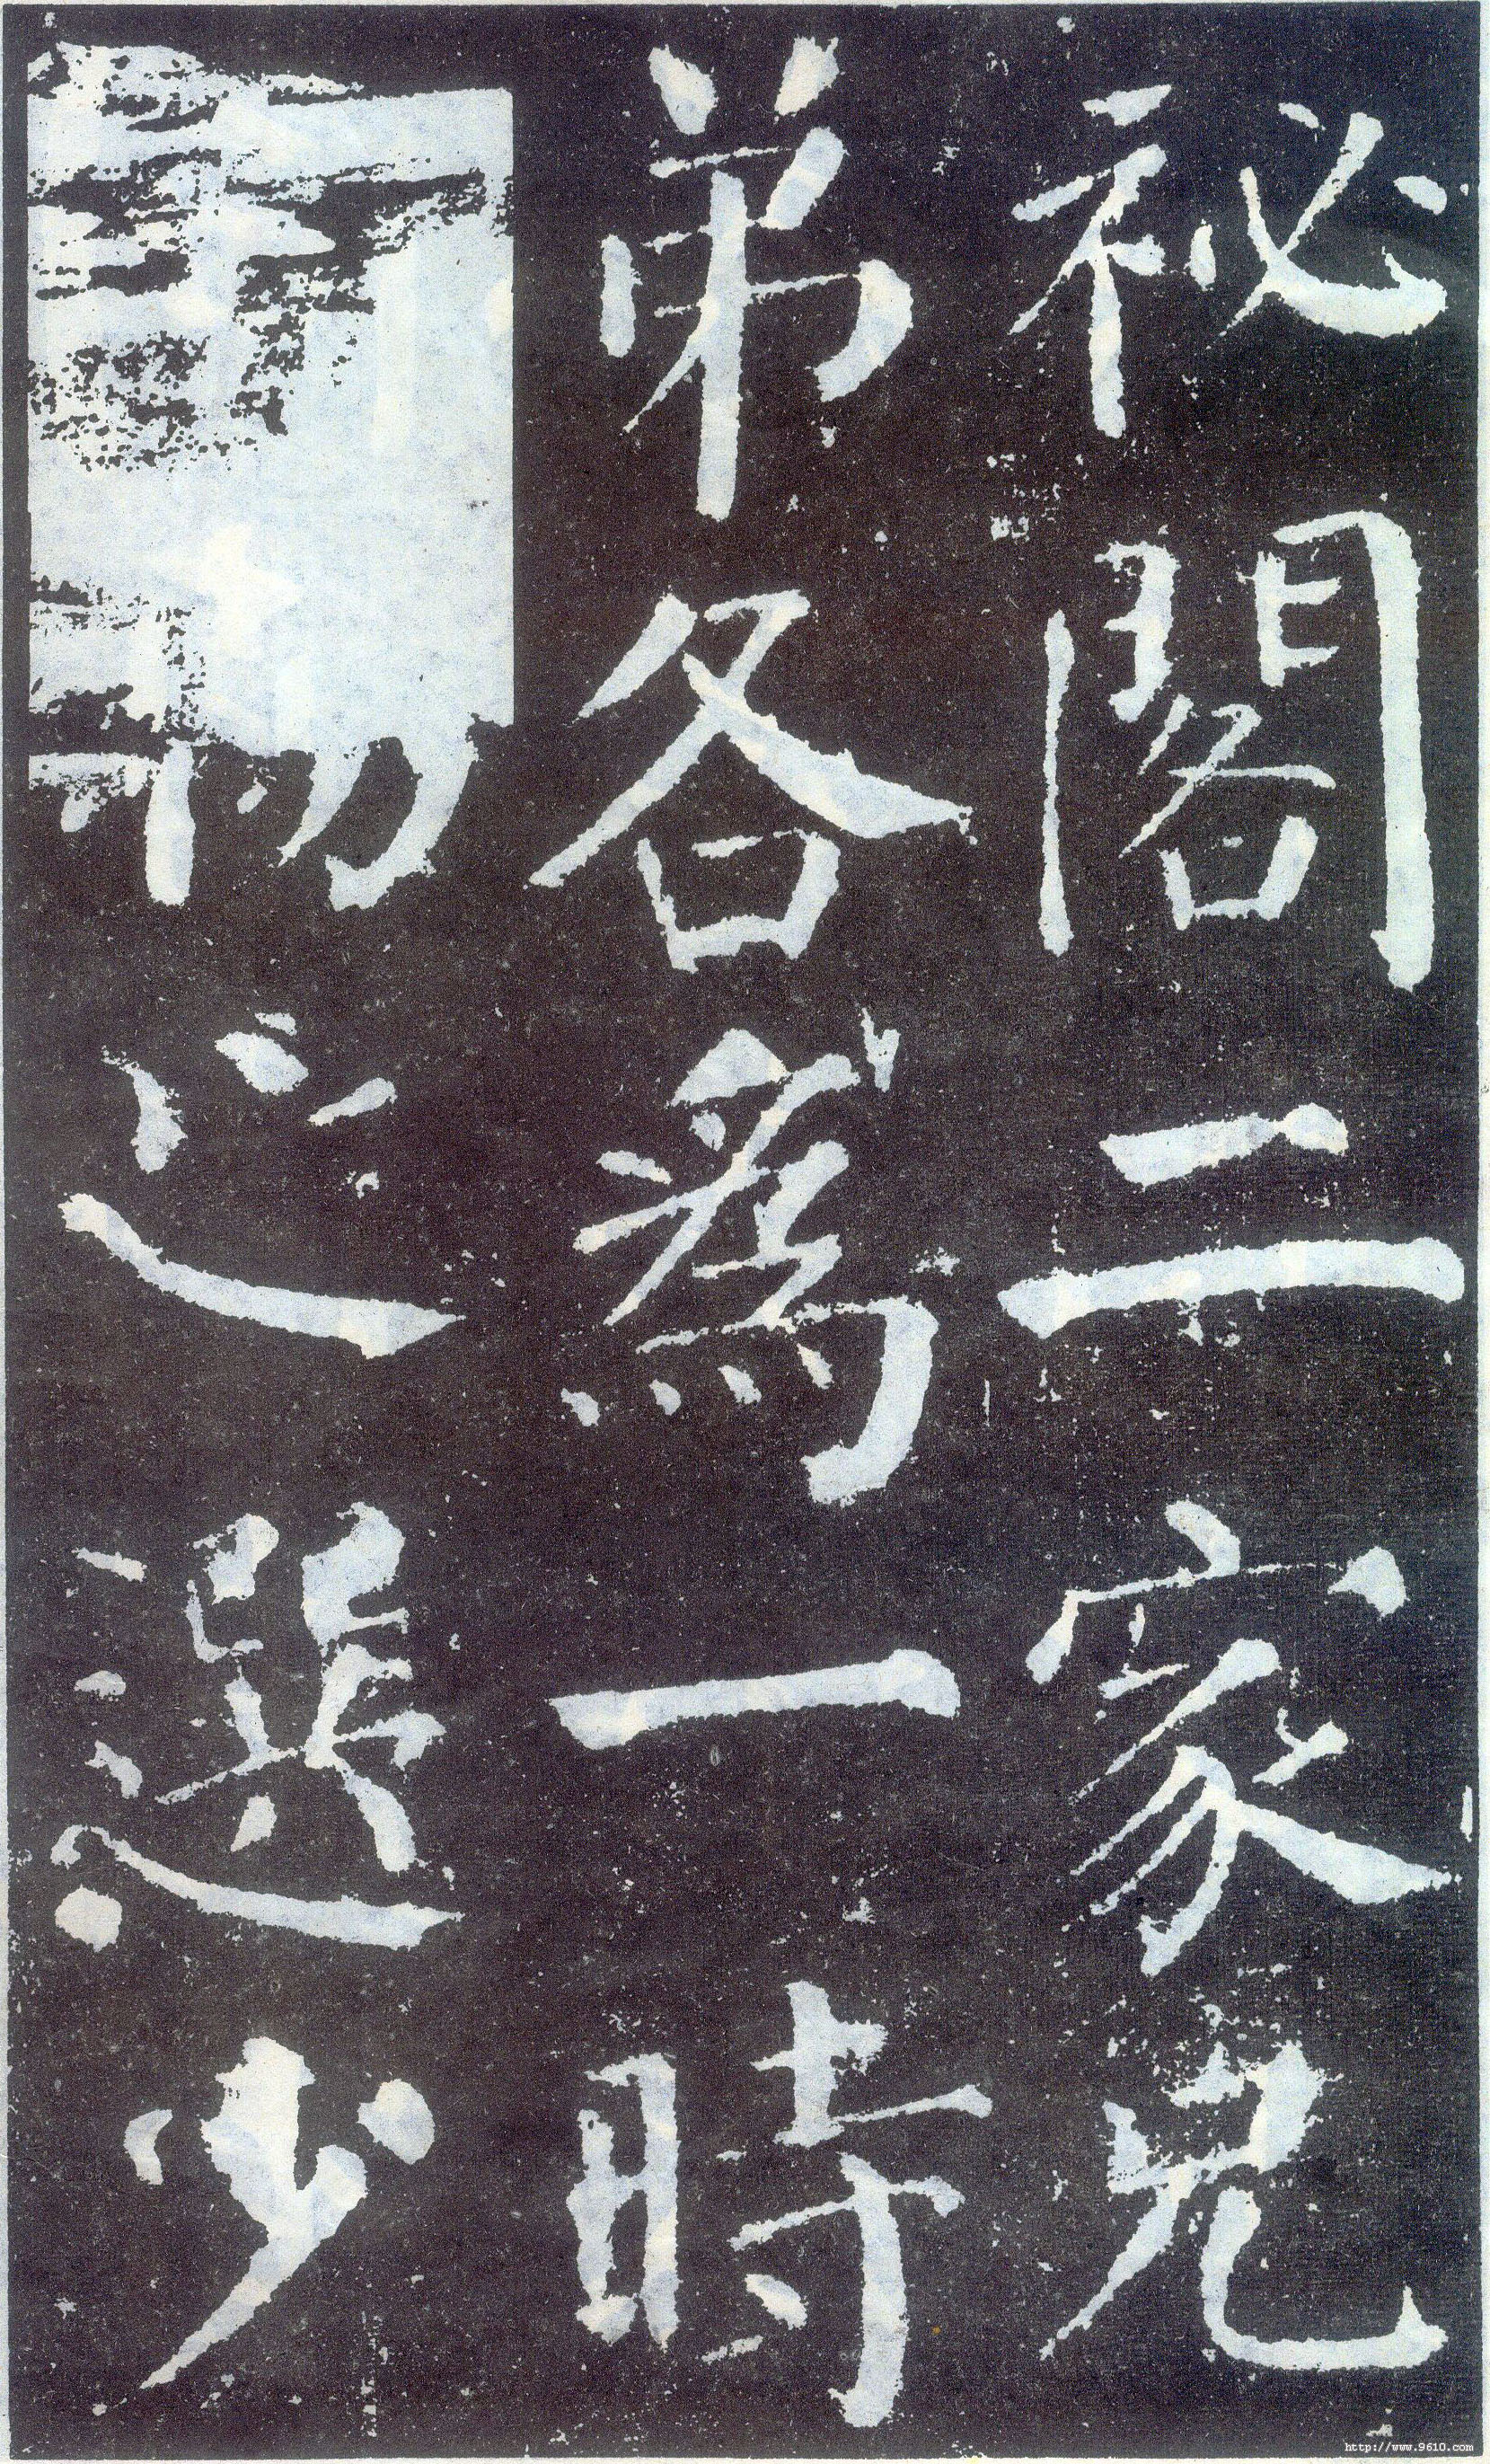 祕閣二家兄
弟各爲一時
物之選少
http://www.9610.com